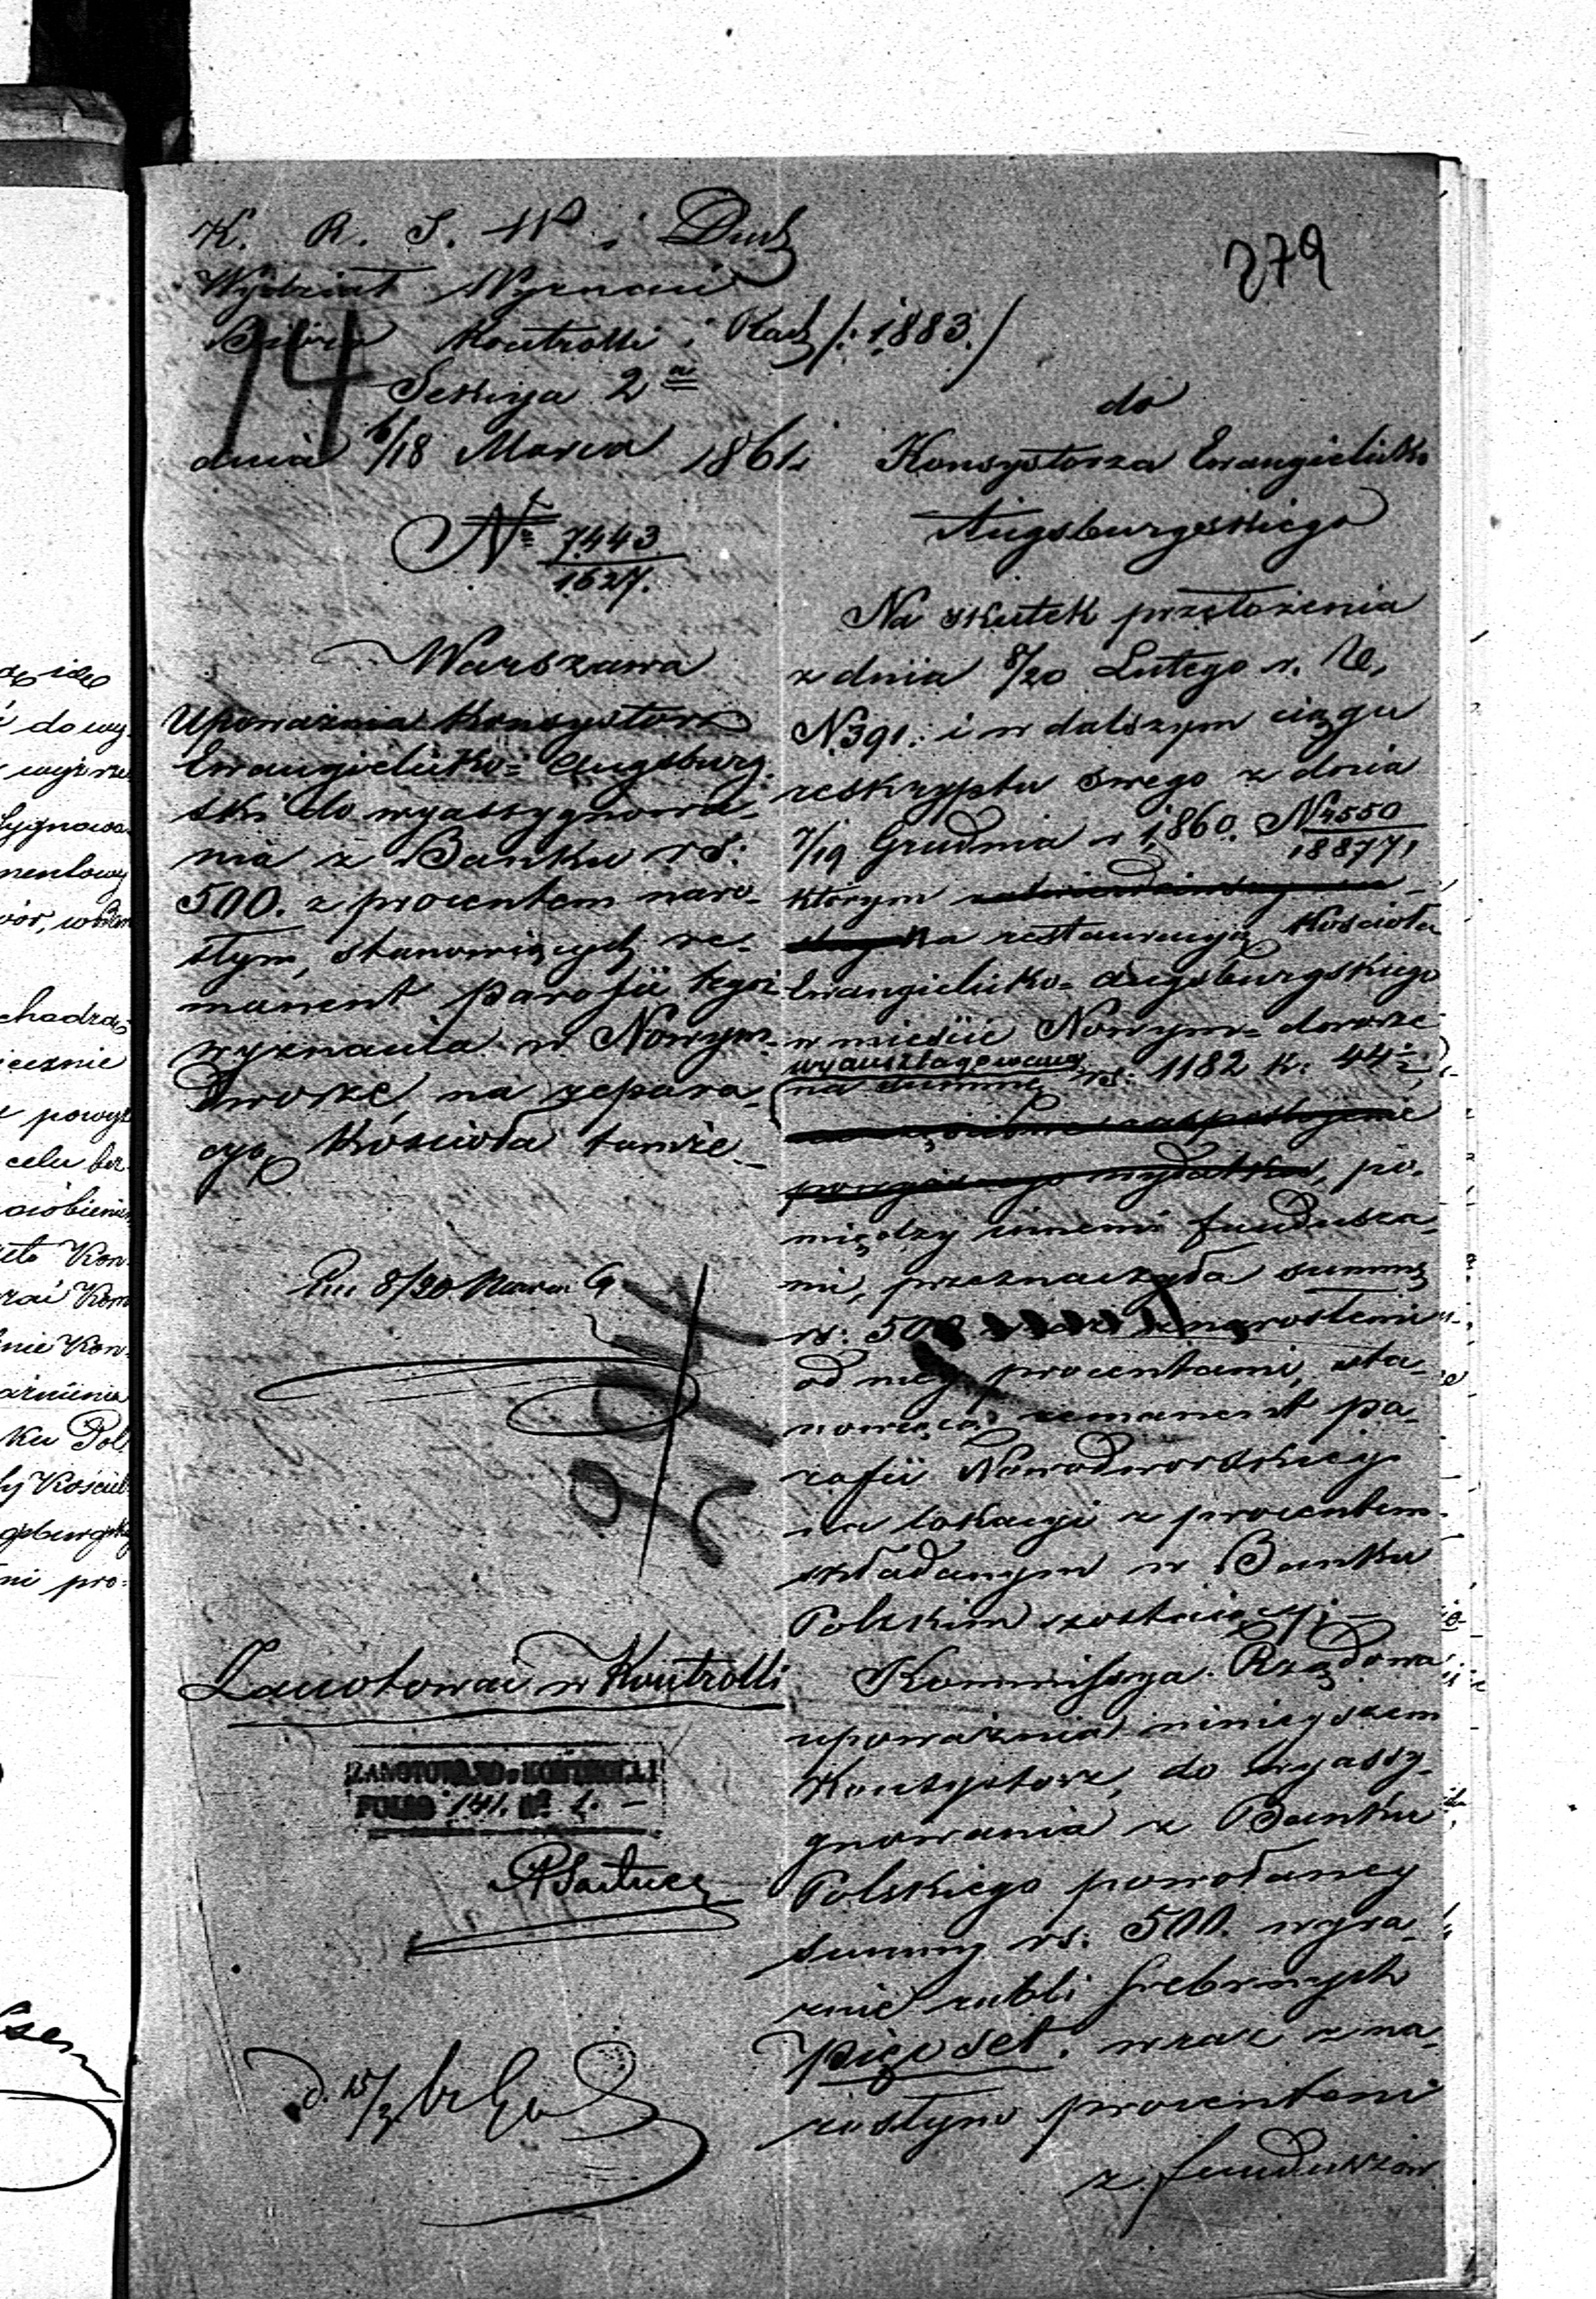 279
K. R. S. W. i Duch
Wydział Wyznań
Biuro Kontrolli i Rach /: 1883./
14
Sekcya 2a
dnia 6/18 Marca 1861.
No 7443
1627.
Warszawa
Upoważnia Konsystorz
Ewangielicko= Augsburg.
ski do wyassygnowa-
nia z Banku rs:
500. z procentem naro-
słym, stanowiących re-
manent parafii tegoż
wyznania w Nowym-
Dworze, na repara
cyą Kościoła tamże.
8/20 Marca
2914
Zanotować w Kontrolli
ZANOTOWANO w KONTROLLI
FOLIO 141. No. 1. –
d. 15/3
do
Konsystorza Ewangielicko
Augsburgskiego
Na skutek przełożenia
z dnia 8/20 Lutego r. b.
N.391. i w dalszym ciągu
reskryptu swego z dnia
7/19 Grudnia r 1860. N 4550
18877,
którym
na restauracyą Kościoła
Ewangielicko= Augsburgskiego
w mieście Nowym= dworze
wyanszlagowaną
na summę rs: 1182 k: 44½,
po-
między innemi fundusza-
mi, przeznaczyła summę
rs: 500 narosłemi
od niej procentami, sta-
nowiącą remanent pa-
rafii Nowodworskiej
na lokacyi z procentem
składanym w Banku
Polskim zostającej; –
Kommissya Rządowa
upoważnia niniejszem
Konsystorz, do wyassy-
gnowania z Banku
Polskiego powołanej
summy rs: 500. wyra-
źnie rubli srebrnych
pięćset. wraz z na-
rosłym procentem
z funduszów